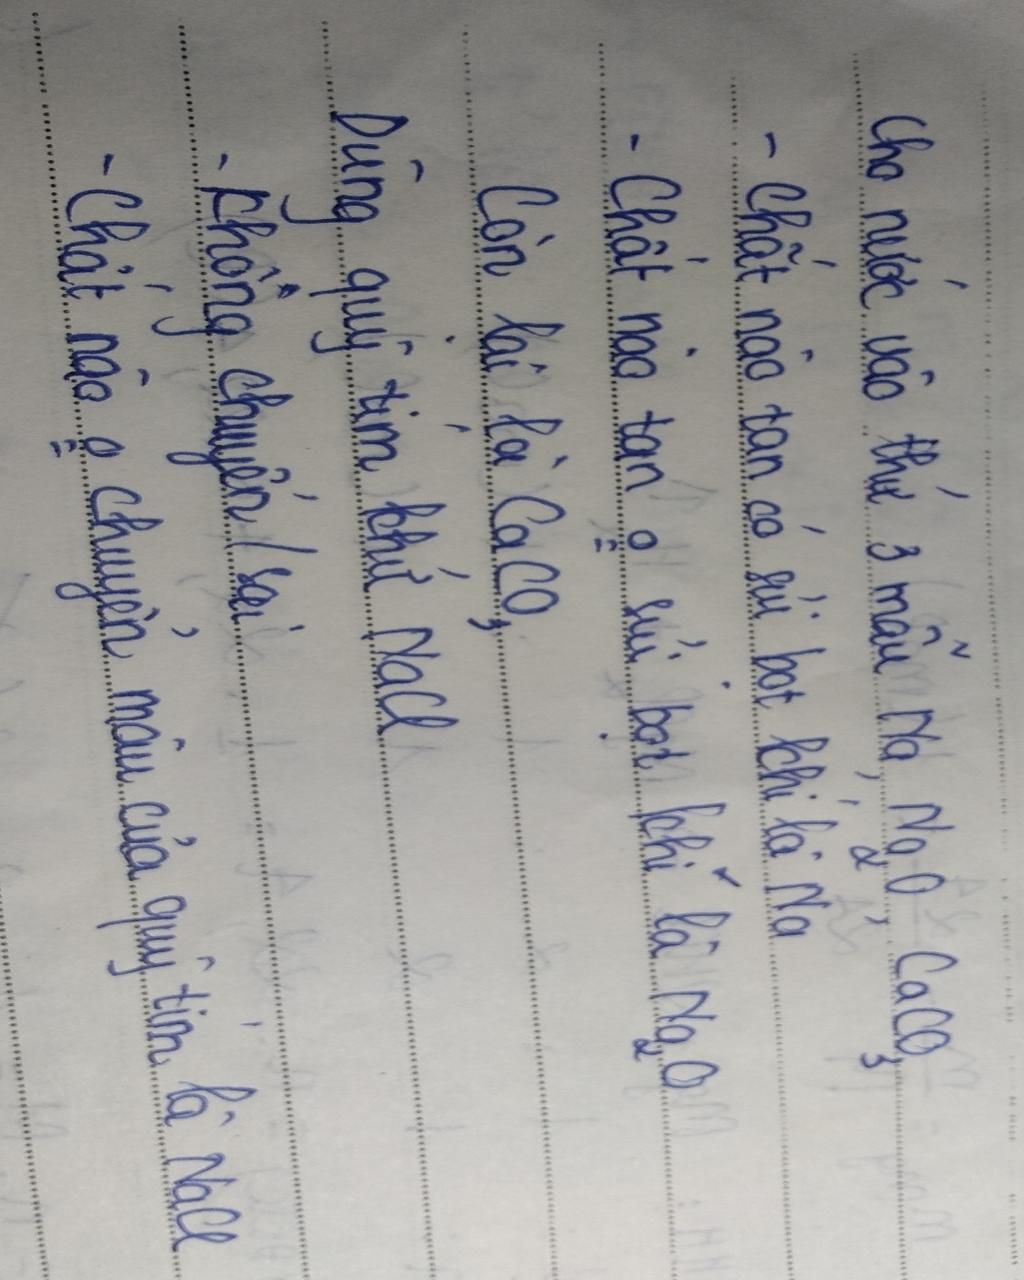 Cho nước vào thử 3 mẫu Na, Na2O, CaCO3
- Chất nào tan có sủi bọt khí là Na
- Chất nào tan o sủi bọt khí là Na2O
Còn lại là CaCO3
Dùng quỳ tím thử NaCl
- Không chuyển / sai
- Chất nào o chuyển màu của quỳ tím là NaCl